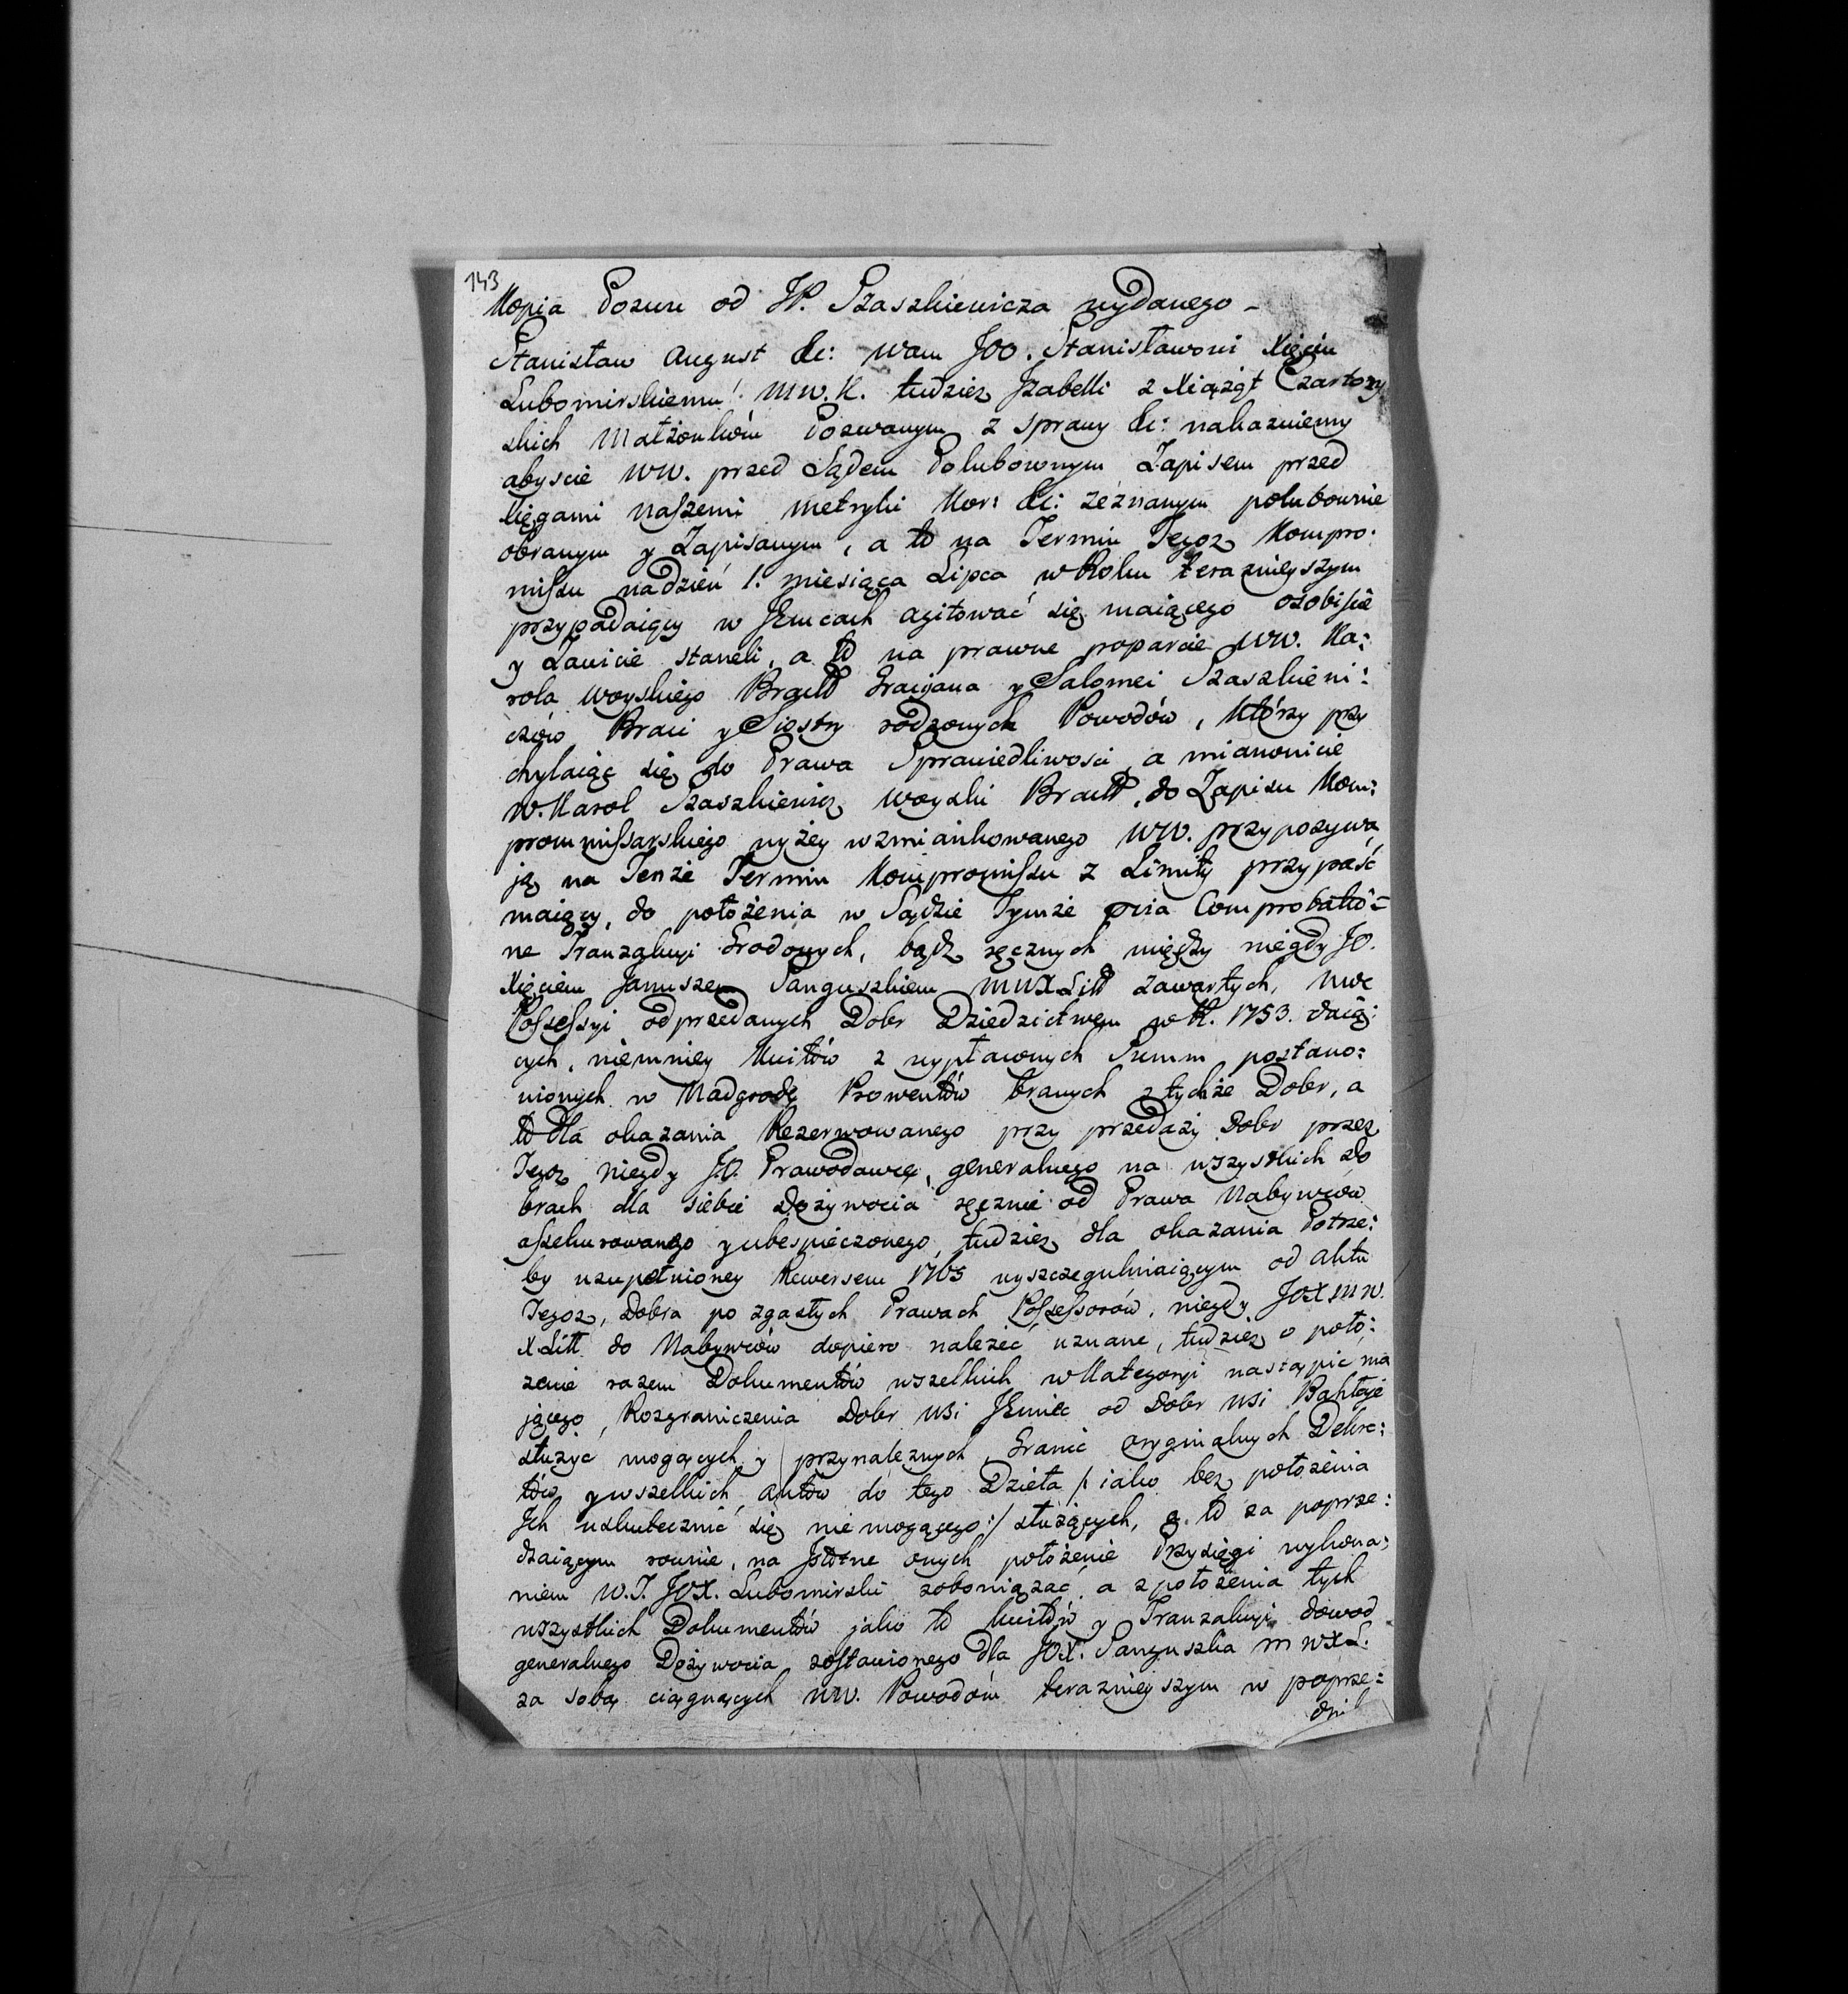 143
Kopia Pozwu od JP. Szaszkiewicza wydanego -
Stanisław August &c: Wam JOO. Stanisławowi Xięciu
Lubomirskiemu MW. K. tudzież Izabelli z Xiążąt Czartory
skich Małżonków Pozwanym z sprawy &c: nakazuiemy
abyscie WW. przed Sądem Polubownym Zapisem przed
Xięgami naszemi metryki Kor: &c: zeznanym polubownie
obranym y Zapisanym, a to na Termin Tegoż Kompro:
missu na dzień 1. miesiąca Lipca w Roku teraznieyszym
przypadaiący w Jlincach agitować się maiącego osobiście
y Zawicie staneli, a to na prawne poparcie WW. Ka:
rola Woyskiego Bracł Gracyana y Salomei Szaszkiewi:
czów Braci y Siostry rodzonych Powodów, którzy przy
chylaiąc się do Prawa Sprawiedliwosci, a mianowicie
W. Karol Szaszkiewicz Woyski Bracł. do Zapisu Kom:
prommissarskiego wyżey wzmiankowanego WW. przypozywa
ją na Tenże Termin Kompromissu z Limity przypaść
maiący, do położenia w Sądzie Tymże pria Comprobatio=
ne Tranzakcyi Grodowych, bądź ręcznych między niegdy JO.
Xięciem Januszem Sanguszkiem MWXLitt zawartych, nwc
Possessyi odprzedanych Dobr Dziedzictwem w R. 1753. daią:
cych, niemniey Kwitów z wypłaconych Summ postano:
wionych w Nadgrodę Prowentów branych z tychże Dobr, a
to dla okazania Rezerwowanego przy przedaży Dobr przez
Tegoż niegdy J.O. Prawodawcę, generalnego na wszystkich Do
brach dla siebie Dożywocia ręcznie od Prawa Nabywców
assekurowanego y ubespieczonego, tudzież dla okazania Potrze:
by uzupełnioney Rewersem 1765 wyszczegulniaiącym od aktu
Tegoż, Dobra po zgasłych Prawach Possessorów, niegdy JOXMW.
XLitt. do Nabywców dopiero należeć uznane, tudzież o poło:
zenie razem Dokumentów wszelkich w Kategoryi nastąpić ma
jącego Rozgraniczenia Dobr wsi Jliniec od Dobr wsi
służyć mogących y przynaleznych Granic oryginalnych Dekre:
tów y wszelkich aktów do tego Dzieła /: iako bez położenia
Jch uskutecznić się nie mogącego :/ służących, a to za poprze:
dzaiącym rownie, na Jstotne onych położenie Przysięgi wykona:
niem W.J. JOX. Lubomirski zobowiązać, a z położenia tych
wszystkich Dokumentów jako to kwitów y Tranzakcyi dowod
generalnego Dożywocia zostawionego dla JOX. Sanguszka MWXL.
za sobą ciągnących WW. Powodom teraznieyszym w poprze:
dni